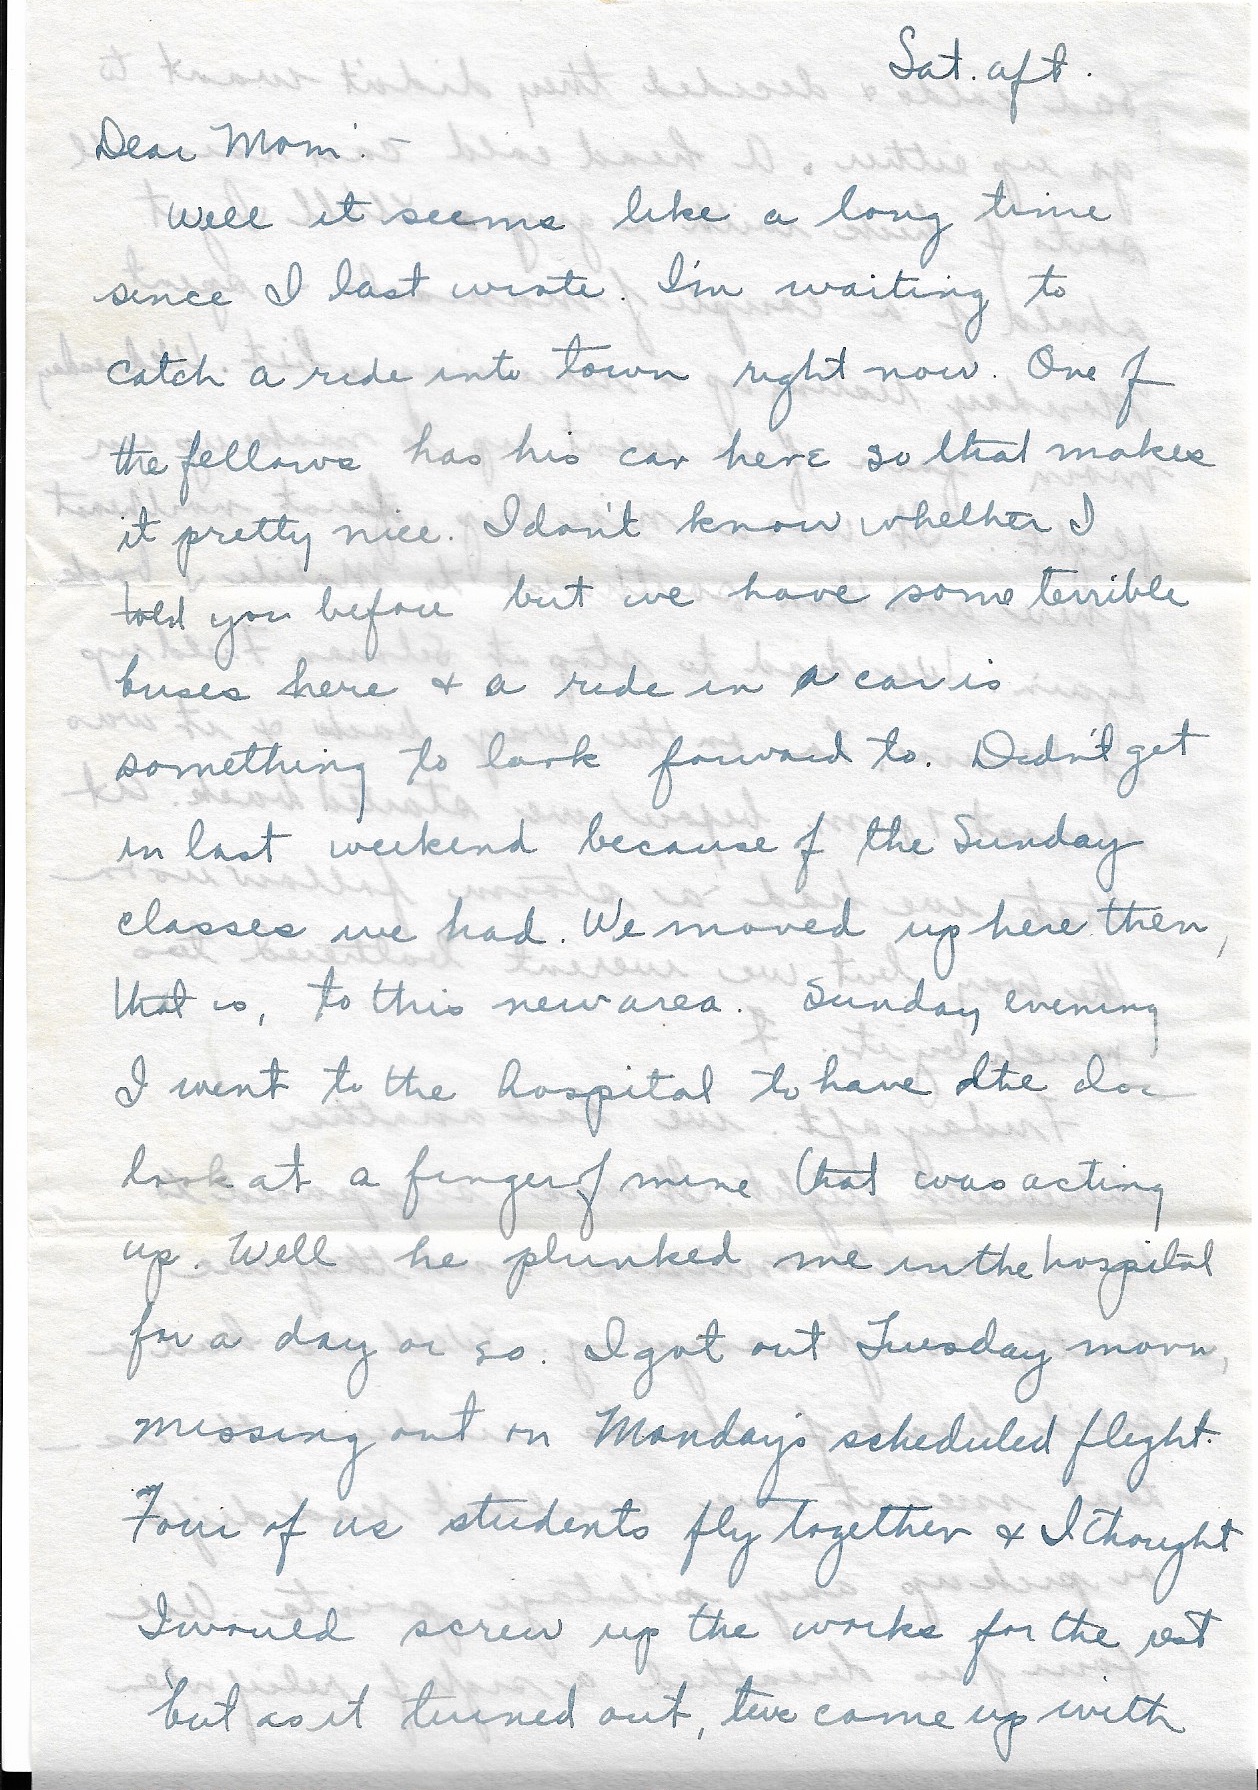 Sat. aft.
Dear Mom:
Well it seems like a long time
since I last wrote. I'm waiting to
catch a ride into town right now. One of
the fellows has his car here so that makes
it pretty nice. I don't know whether I
told you before but we have some terrible
buses here & a ride in a car is
something to look forward to. Didn't get
in last weekend because of the Sunday
classes we had. We moved up here then,
that is, to this new area. Sunday evening
I went to the hospital to have the doc
look at a finger of mine that was acting
up. Well he plunked me in the hospital
for a day or so. I got out Tuesday morn,
missing out on Monday's scheduled flight.
Four of us students fly together & I thought
I would screw up the works for the rest
but as it turned out, two came up with